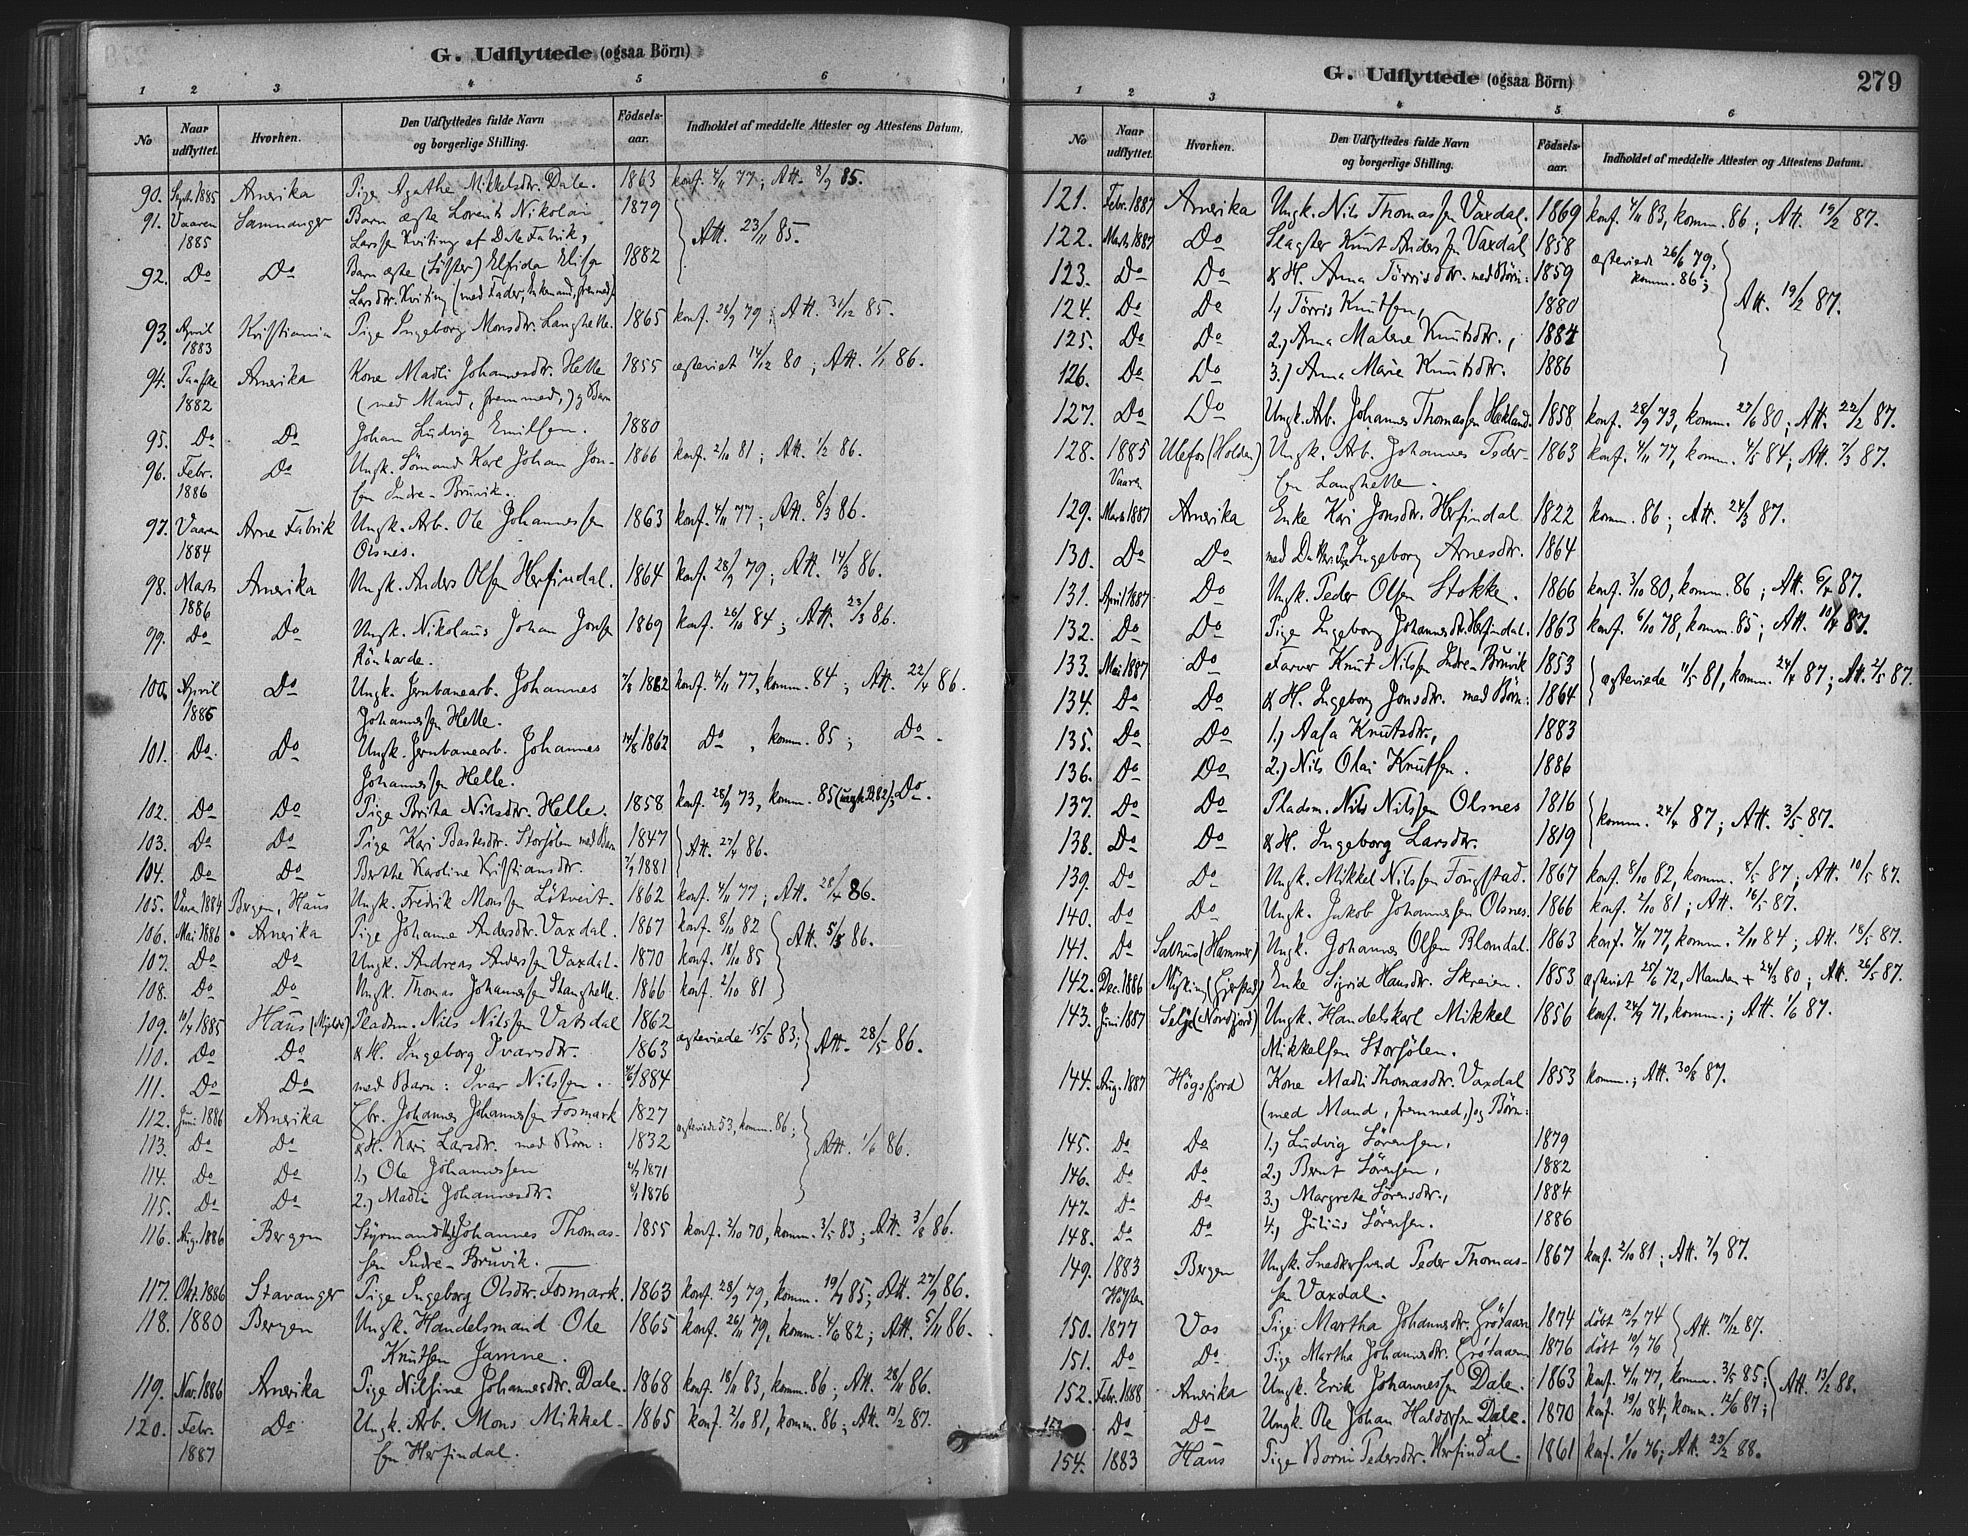 G. Udflyttede (ogsaa Börn)
1 2 3 4 5 6
No Naar udflyttet. Hvorhen. Den Udflyttedes fulde Navn og borgerlige Stilling. Födsels-aar. Indholdet af meddelte Attester og Attestens Datum.
90. Sept. 1885 Amerika Pige Agathe Mikkelsdtr. Dale. 1863 konf. 4/11 77; Att. 8/9 85.
91. Vaaren 1885 Samnanger Barn ægte Lorents Nikolai 1879
Larssen Kviting af Dale Fabrik, Att. 23/11 85.
92. Do Do Barn ægte (Söster) Elfida Elise 1882
Larsdtr. Kviting (med Fader,
93. April 1883 Kristiania Pige Ingeborg Monsdtr. Langhelle. 1865 konf. 28/9 79; Att. 31/12 85.
94. 1882 Amerika Kone Madli Johannesdtr. Helle 1855 ægteviet 14/12 80; Att. 1/1 86.
(med Mand, fremmed,) og Barn
95. Do Do Johan Ludvig Emilsen. 1880
96. Febr. 1886 Do Ungk. Sömand Karl Johan Jon- 1866 konf. 2/10 81; Att. 1/2 86.
sen Indre-Bruvik.
97. Vaaren 1884 Arne Fabrik Ungk. Arb. Ole Johannessen 1863 konf. 4/11 77; Att. 8/3 86.
Olsnes.
98. Marts 1886 Amerika Ungk. Anders Olsen Herfindal. 1864 konf. 28/9 79; Att. 14/3 86.
99. Do Do Ungk. Nikolaus Johan Jonsen 1869 konf. 26/10 84; Att. 23/3 86.
100. April 1886 Do Ungk. Jernbanearb. Johannes 7/8 1862 konf. 4/11 77, komm. 84; Att. 22/4 86.
Johannessen Helle.
101. Do Do Ungk. Jernbanearb. Johannes 14/8 1862 Do, komm. 85; Do.
Johannessen Helle.
102. Do Do Pige Brita Nilsdtr. Helle. 1858 konf. 28/9 73, komm. 85 Do.
103. Do Do Pige Kari Bastesdtr. Storsölen med Barn 1847
Att. 27/4 86.
104. Do Do Berthe Karoline Kristiansdtr. 1881
105. Vaar. 1884 Bergen, Haus Ungk. Fredrik Monsen Lötveit. 1862 konf. 4/11 77; Att. 28/4 86.
106. Mai 1886 Amerika Pige Johanne Andersdtr. Vaxdal. 1867 konf. 8/10 82
107. Do Do Ungk. Andreas Anderssen Vaxdal. 1870 konf. 18/10 85 Att. 5/5 86.
108. Do Do Ungk. Thomas Johannessen Stanghelle. 1866 konf. 2/10 81
109. 10/4 1885 Haus (Mjelde) Pladsm. Nils Nilssen Vatsdal 1862
ægteviede 15/5 83; Att. 28/5 86.
110. Do Do & H. Ingeborg Ivarsdtr. 1863
111. Do Do med Barn: Ivar Nilssen. 1884
112. Juni 1886 Amerika Gbr. Johannes Johannessen Fosmark 1827
ægteviede 53, komm. 86; Att. 1/6 86.
113. Do Do & H. Kari Larsdtr. med Börn: 1832
114. Do Do 1.) Ole Johannessen 1871
115. Do Do 2.) Madli Johannesdtr. 1876
116. Aug. 1886 Bergen Styrmand Johannes Thomas- 1855 konf. 2/10 70, komm. 3/5 83; Att. 3/8 86.
sen Indre-Bruvik.
117. Okt. 1886 Stavanger Pige Ingeborg Olsdtr. Fosmark. 1863 konf. 28/9 79, komm. 19/9 85; Att. 27/9 86.
118. 1880 Bergen Ungk. Handelsmand Ole 1865 konf. 26/11 79, komm. 4/6 82; Att. 5/11 86.
Knutsen Jamne.
119. Nov. 1886 Amerika Pige Nilsine Johannesdtr. Dale. 1868 konf. 18/11 83, komm. 86; Att. 28/11 86.
120. Febr. 1887 Do Ungk. Arb. Mons Mikkel- 1865 konf. 2/10 81, komm. 86; Att. 13/2 87.
sen Herfindal.
G. Udflyttede (ogsaa Börn) 279
1 2 3 4 5 6
No Naar udflyttet. Hvorhen. Den Udflyttedes fulde Navn og borgerlige Stilling. Födsels-aar. Indholdet af meddelte Attester og Attestens Datum.
121. Febr. 1887 Amerika Ungk. Nils Thomassen Vaxdal. 1869 konf. 4/11 83, komm. 86; Att. 19/2 87.
122. Marts 1887 Do Slagter Knut Anderssen Vaxdal 1858
ægteviede 26/6 79, komm. 86; Att. 19/2 87.
123. Do Do & H. Anna Törrisdtr. med Börn: 1859
124. Do Do 1.) Törris Knutsen, 1880
125. Do Do 2.) Anna Malene Knutsdtr., 1884
126. Do Do 3.) Anna Marie Knutsdtr. 1886
127. Do Do Ungk. Arb. Johannes Thomassen Hækland. 1858 konf. 28/9 73, komm. 27/6 80; Att. 22/2 87.
128. 1885 Vaaren Ulefos (Holden) Ungk. Arb. Johannes Peder- 1863 konf. 4/11 77, komm. 4/5 84; Att. 7/3 87.
sen Langhelle.
129. Marts 1887 Amerika Enke Kari Jonsdtr. Herfindal 1822 komm. 86; Att. 24/3 87.
130. Do Do med Datter Ingeborg Arnesdtr. 1864
131. April 1887 Do Ungk. Peder Olsen Stokke. 1866 konf. 3/10 80, komm. 86; Att. 6/4 87.
132. Do Do Pige Ingeborg Johannesdtr. Herfindal. 1863 konf. 6/10 78, komm. 85; Att. 10/4 87.
133. Mai 1887 Do Farver Knut Nilssen Indre-Bruvik 1853
ægteviede 11/5 81, komm. 24/4 87; Att. 2/5 87.
134. Do Do & H. Ingeborg Jonsdtr. med Börn: 1864
135. Do Do 1.) Aasa Knutsdtr., 1883
136. Do Do 2.) Nils Olai Knutsen. 1886
137. Do Do Pladsm. Nils Nilssen Olsnes 1816
komm. 24/4 87; Att. 3/5 87.
138. Do Do & H. Ingeborg Larsdtr. 1819
139. Do Do Ungk. Mikkel Nilssen Fougstad. 1867 konf. 8/10 82, komm. 8/5 87; Att. 10/5 87.
140. Do Do Ungk. Jakob Johannessen Olsnes. 1866 konf. 2/10 81; Att. 16/5 87.
141. Do Salhus (Hammer) Ungk. Johannes Olsen Blomdal. 1863 konf. 4/11 77, komm. 2/11 84; Att. 18/5 87.
142. Dec. 1886 Enke Sigrid Hansdtr. Skreien. 1853 ægteviet 25/6 72, Manden + 24/3 80; Att. 26/5 87.
143. Juni 1887 Selje (Nordfjord) Ungk. Handelskarl Mikkel 1856 konf. 24/9 71, komm.; Att. 1/6 87.
Mikkelsen Storsölen.
144. Aug. 1887 Högsfjord Kone Madli Thomasdtr. Vaxdal 1853 komm.; Att. 30/8 87.
(med Mand, fremmed,) og Börn:
145. Do Do 1.) Ludvig Sörensen, 1879
146. Do Do 2.) Bernt Sörensen, 1882
147. Do Do 3.) Margrete Sörensdtr., 1884
148. Do Do 4.) Julius Sörensen. 1886
149. 1883 Hösten Bergen Ungk. Snedkersvend Peder Thomas- 1867 konf. 2/10 81; Att. 7/9 87.
sen Vaxdal.
150. 1877 Vos Pige Martha Johannesdtr. Grötaaen 1874 döbt 12/7 74
Att. 17/12 87.
151. Do Do Pige Martha Johannesdtr. Grötaaen 1876 döbt 10/9 76
152. Febr. 1888 Amerika Ungk. Erik Johannessen Dale. 1863 konf. 4/11 77, komm. 3/5 85; Att. 13/2 88.
153. Do Do Ungk. Ole Johan Haldorsen Dale. 1870 konf. 19/10 84, komm. 12/6 87;
154. 1883 Haus Pige Borni Pedersdtr. Herfindal. 1861 konf. 1/10 76; Att. 23/2 88.